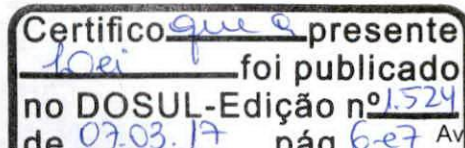 Certifico que a presente
Lei foi publicado
no DOSUL-Edição nº 1.524
de 07.03.17 pág 6-e7 Av